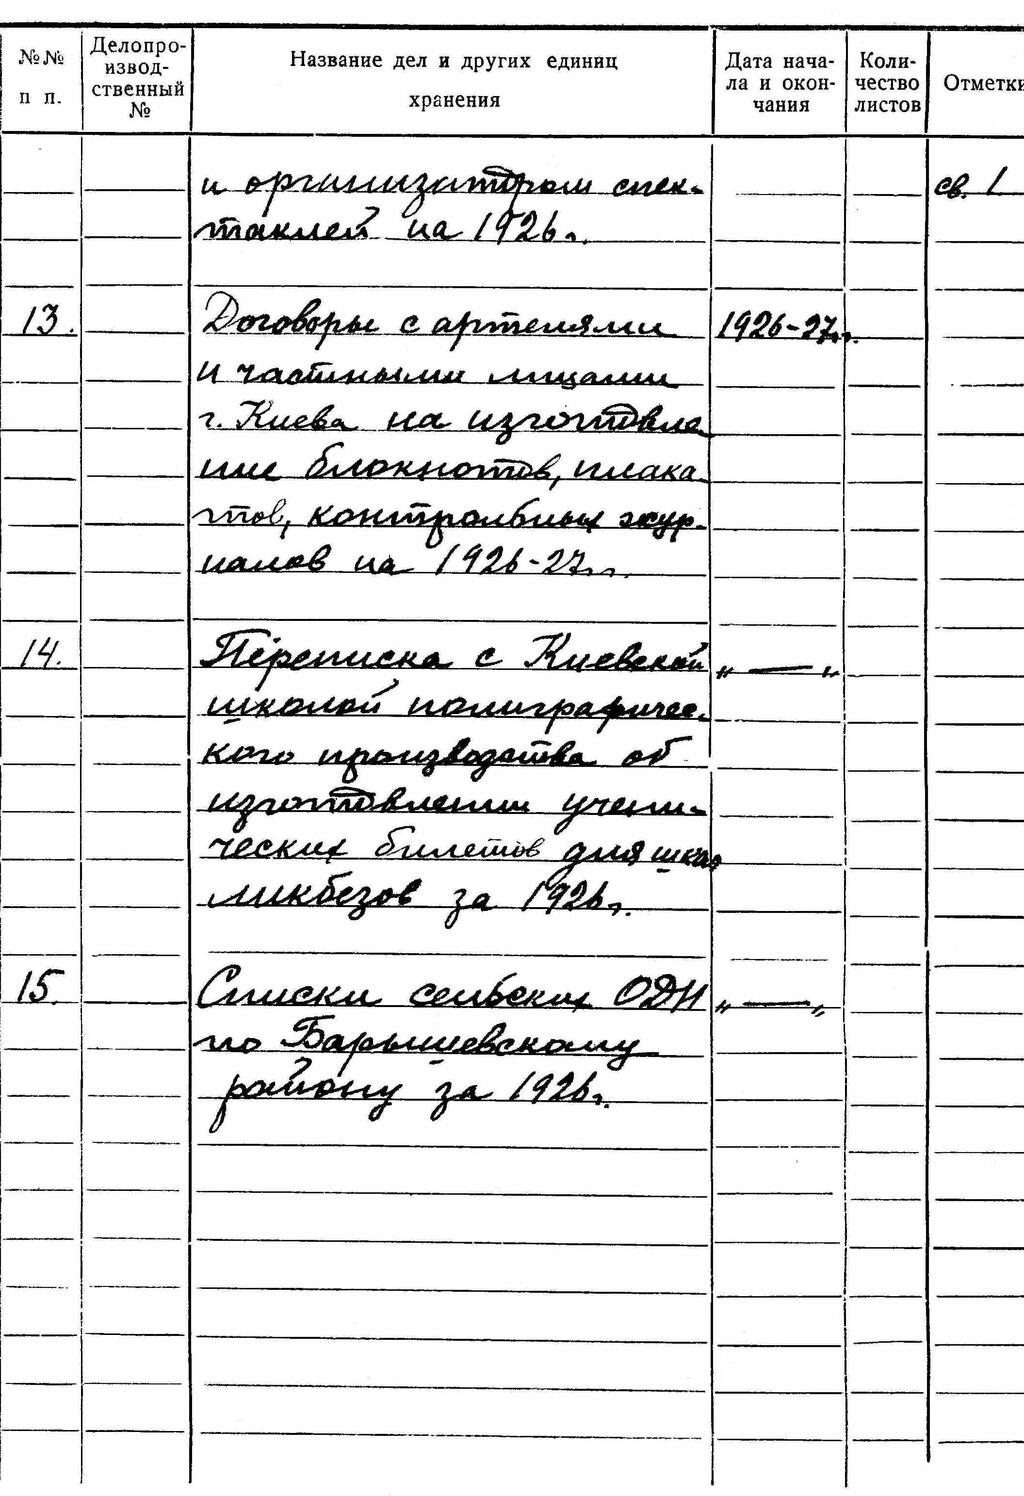 №№ п п.
Делопро-
извод-
ственный
№
Название дел и других единиц
хранения
Дата нача-
ла и окон-
чания
Коли-
чество
листов
Отметки
и организатором спек- св. 1
таклей на 1926г.
13. Договоры с артелями 1926-27г.г.
и частными лицами
г. Киева на изготовле
ние блокнотов, плака-
тов, контрольных жур-
налов на 1926-27г.г.
14. Переписка с Киевской „—„
школой полиграфичес-
кого производства об
изготовлении учени-
ческих билетов для школ
ликбезов за 1926г.
15. Списки сельских ОДН „—„
по Барышевскому
району за 1926г.